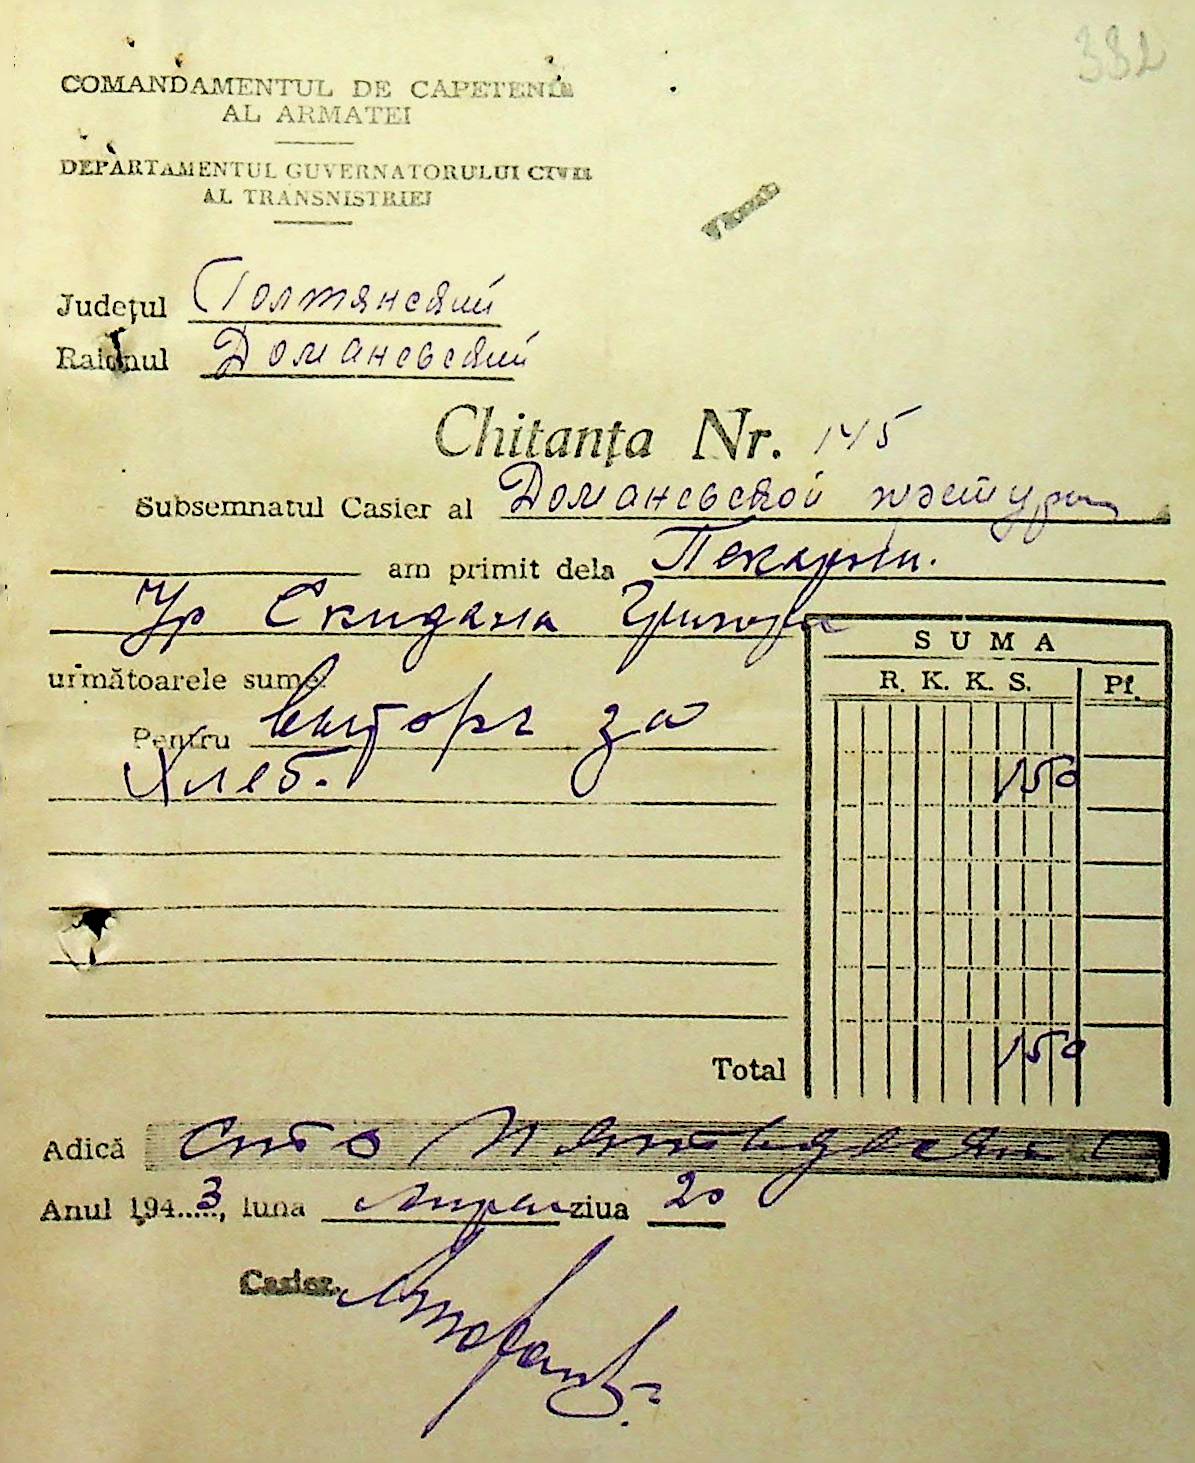 382
COMANDAMENTUL DE CAPETENIE
AL ARMATEI
DEPARTAMENTUL GUVERNATORULUI CIVIL
AL TRANSNISTRIEI
Județul Голтянский
Raionul Доманевский
Chitanța Nr. 145
Subsemnatul Casier al Доманевской претуры
am primit dela Пекарни.
Ур Скидана Григория
următoarele sume:
Pentru выторг за
Хлеб.
SUMA
R. K. K. S. Pf.
150
Total 150
Adică Сто Пятьдесят
Anul 1943, luna апрель ziua 20
Casier,